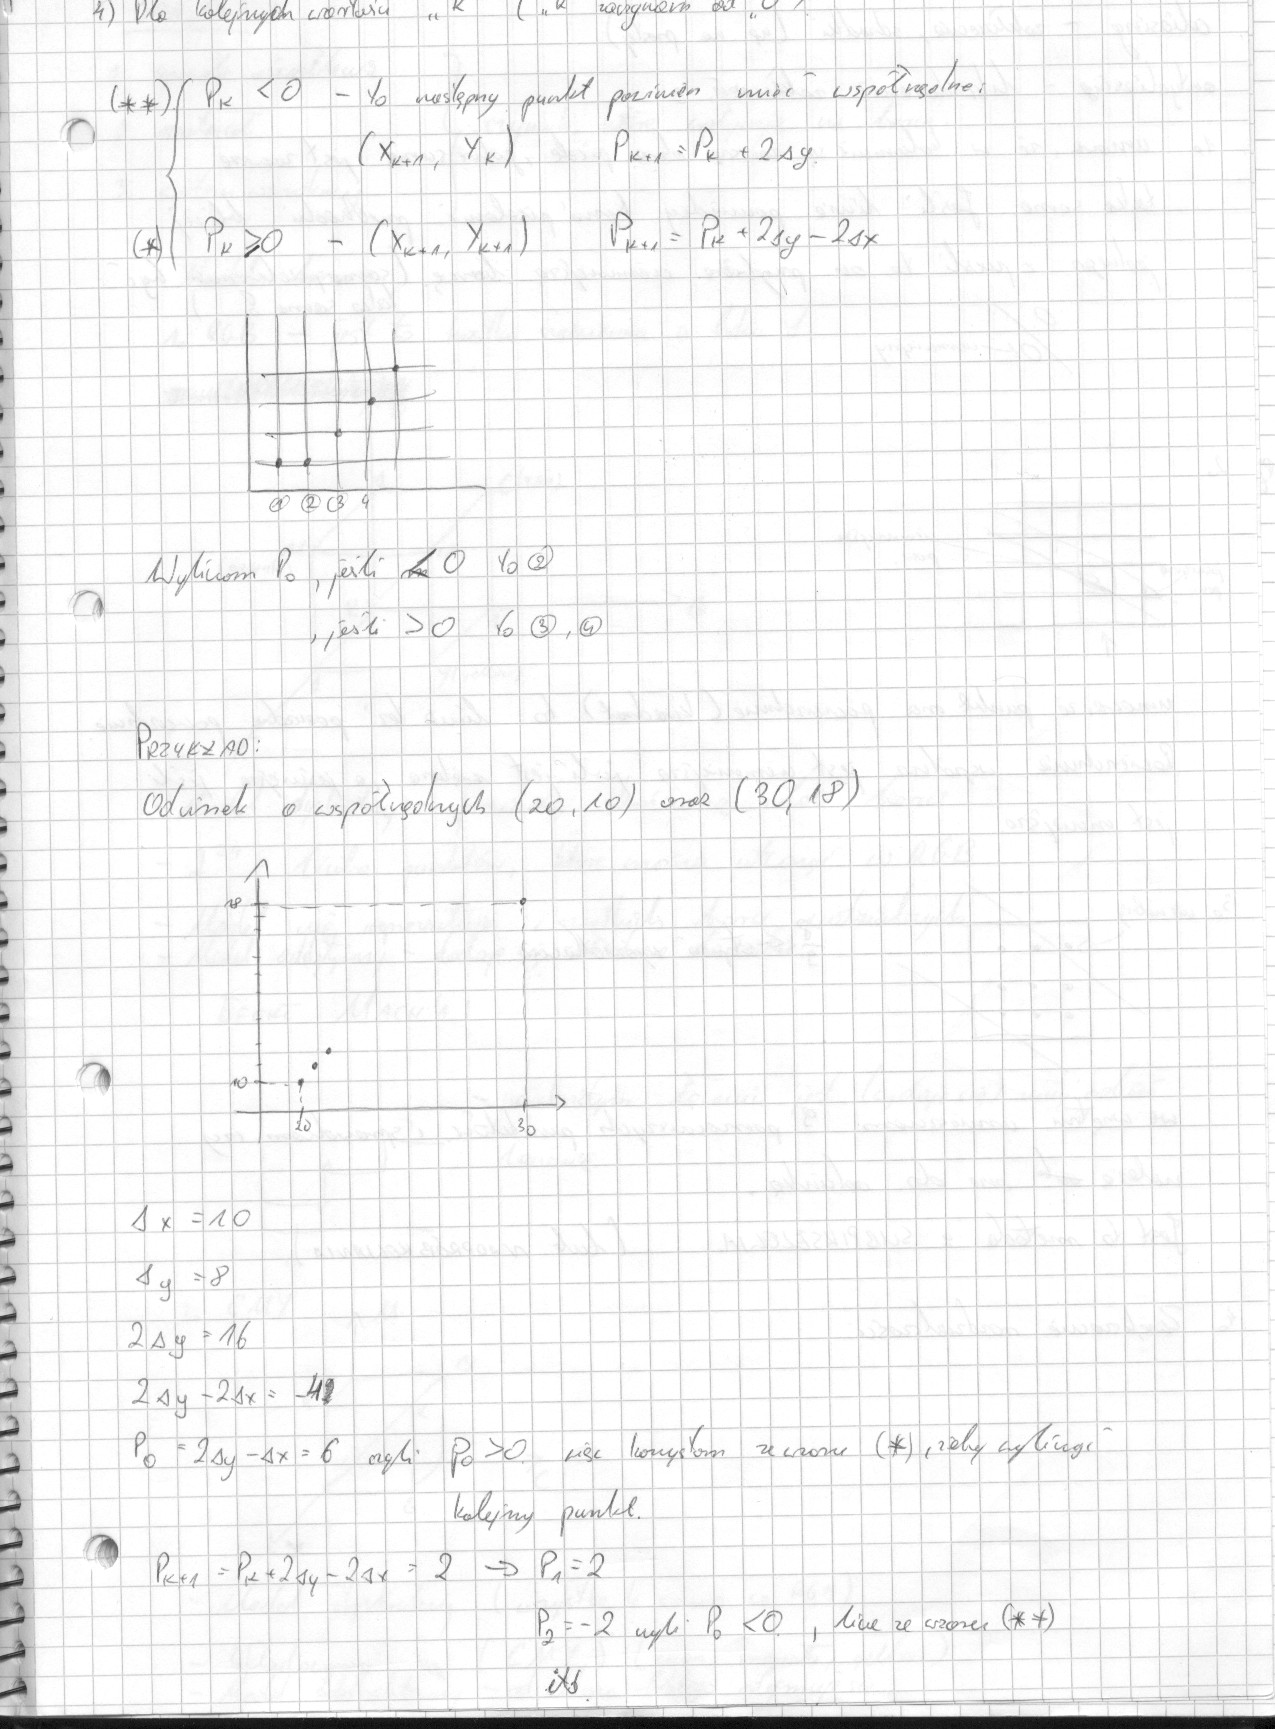 4) Dla kolejnych wartości „k" („k" zaczynam od „0")
(**) Pk < 0 – to następny punkt powinien mieć współrzędne:
(Xk+1, Yk) Pk+1 = Pk + 2Δy
(*) Pk ≥ 0 – (Xk+1, Yk+1) Pk+1 = Pk + 2Δy – 2Δx
① ② ③ 4
Wyliczam P0, jeśli < 0 to ②
, jeśli > 0 to ③, ④
PRZYKŁAD:
Odcinek o współrzędnych (20, 10) oraz (30, 18)
18
10
20 30
Δx = 10
Δy = 8
2Δy = 16
2Δy – 2Δx = -4
P0 = 2Δy – Δx = 6 czyli P0 > 0 więc korzystam ze wzoru (*), żeby wyliczyć
kolejny punkt.
Pk+1 = Pk + 2Δy – 2Δx = 2 → P1 = 2
P2 = -2 czyli P0 < 0, licze ze wzoru (**)
itd.